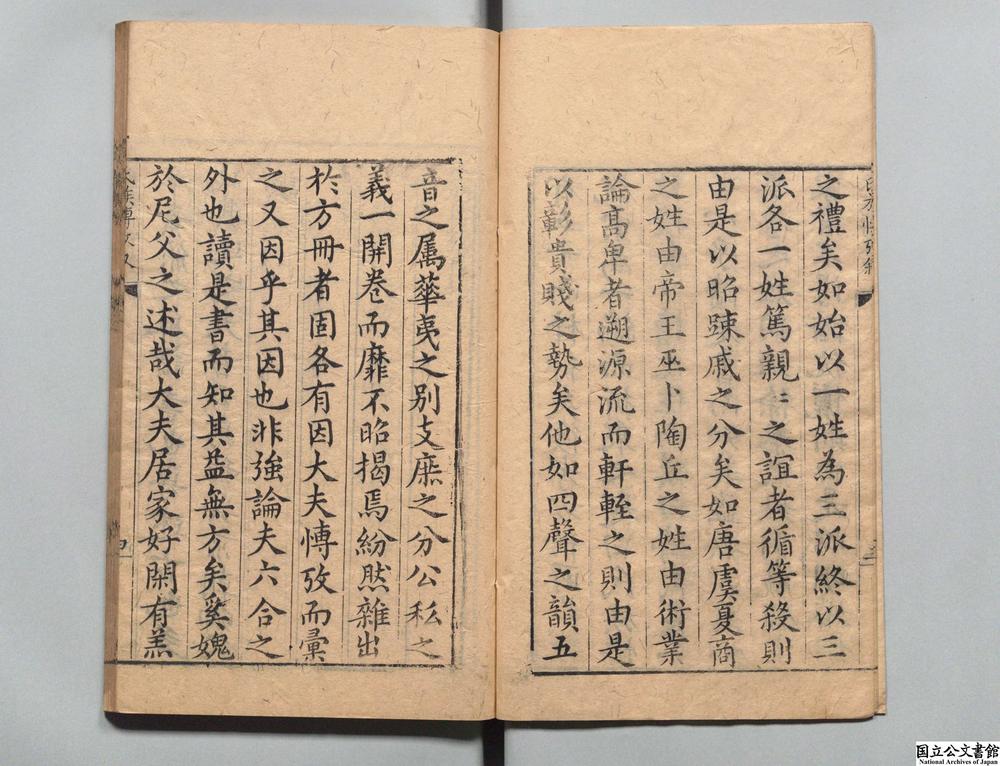 之禮矣如始以一姓為三派終以三
派各一姓篤親〻之誼者循等殺則
由是以昭踈戚之分矣如唐虞夏商
之姓由帝王巫卜陶丘之姓由術業
論高卑者遡源流而軒輊之則由是
以彰貴賤之勢矣他如四聲之韻五
音之属華夷之別支庶之分公私之
義一開卷而靡不昭揭焉紛然雜出
扵方冊者固各有因大夫愽攷而彙
之又因乎其因也非強論夫六合之
外也讀是書而知其益無方矣奚媿
於尼父之述哉大夫居家好閑有羔
国立公文書館
National Archives of Japan